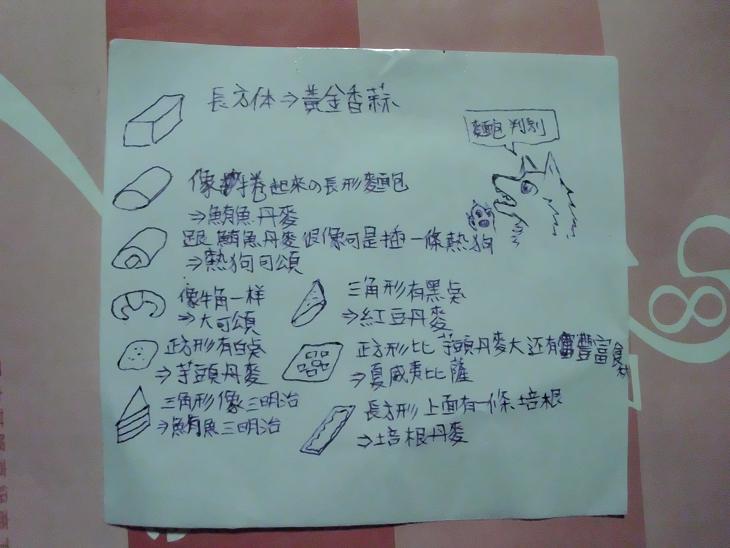 長方体⇒黃金香蒜
麵包判別
像捲起來の長形麵包
⇒鮪魚丹麥
跟鮪魚丹麥很像可是插一條熱狗
⇒熱狗可頌
像牛角一样
⇒大可頌
三角形有黑点
⇒紅豆丹麥
正方形有白点
⇒芋頭丹麥
正方形比芋頭丹麥大还有豐富食材
⇒夏威夷比薩
三角形像三明治
⇒鮪魚三明治
長方形上面有一條培根
⇒培根丹麥
8